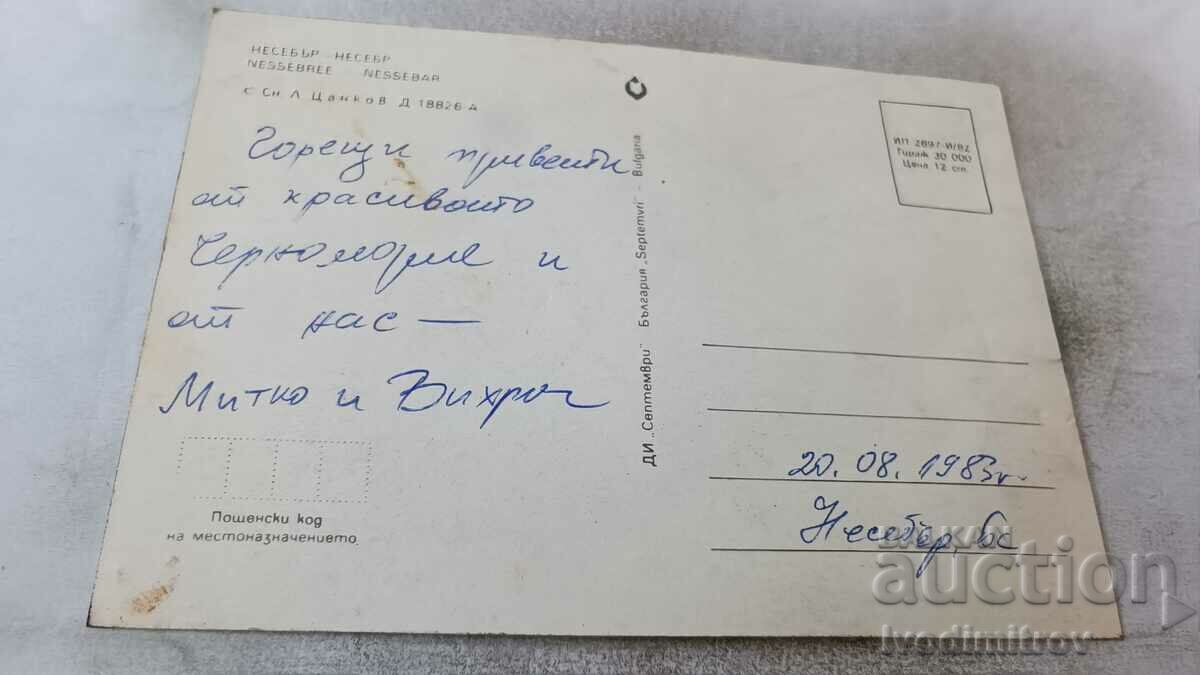 НЕСЕБЪР - НЕСЕБР
NESSEBREE NESSEBAR
© Сн. Л. Цанков Д 18826-А
Горещи привети
от красивото
Черноморие и
от нас —
Митко и
Пощенски код
на местоназначението
ДИ „Септември" България „Septemvri" - Bulgaria
ИП 2897-И/82
Тираж 30 000
Цена 12 ст.
20.08.1983г.
Несебър,
BALKAN
auction
Ivodimitrov